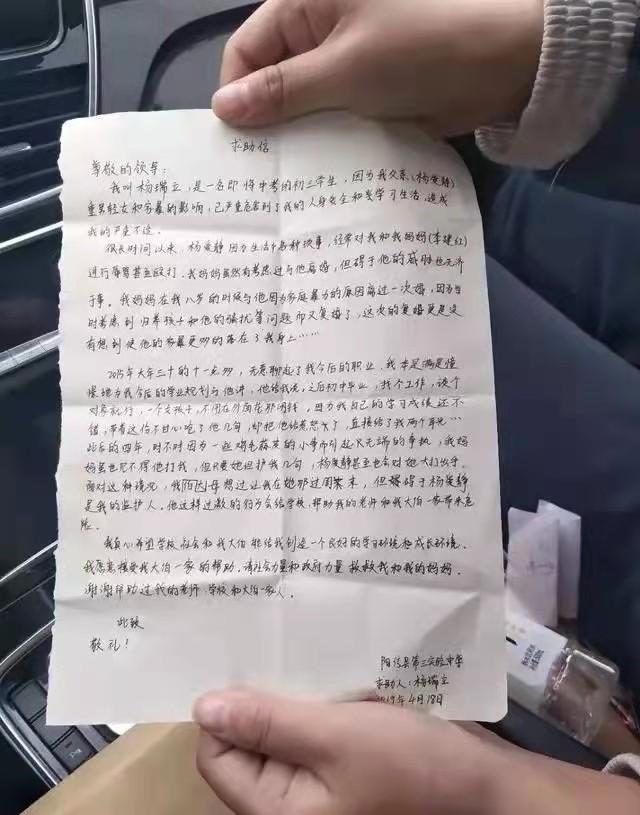 求助信
尊敬的领导:
我叫杨瑞立,是一名即将中考的初三学生,因为我父亲(杨爱静)
重男轻女和家暴的影响,已严重危害到了我的人身安全和受学习生活,造成
我的严重不适。
很长时间以来,杨爱静因为生活中各种琐事,经常对我和我妈妈(李建红)
进行辱骂甚至殴打。我妈妈虽然有考虑过与他离婚,但碍于他的威胁也无济
于事。我妈妈在我八岁的时候与他因为家庭暴力的原因离过一次婚,因为当
时考虑到 抚养孩子和他的骚扰等问题而又复婚了,这次的复婚更是没
有想到使他的家暴更多的落在了我身上……
2015年大年三十的十一点多,无意聊起了我今后的职业,我本是满是憧
憬地为我今后的学业规划与他讲,他给我说,之后初中毕业,找个工作,谈个
对象就行,一个女孩子,不用在外面花那闲钱。因为我自己的学习成绩还不
错,带着这份不甘心吃了他几句,却把他给惹怒了,直接给了我两个耳光…
此后的四年,时不时因为一些鸡毛蒜皮的小事而引起无端的争执,我妈
妈虽也见不得他打我,但只要她袒护我几句,杨爱静甚至也会对她大打出手。
面对这种情况,我伯母想过让我在她那过周末,但碍得于杨爱静
是我的监护人。他这样过激的行为会给学校,帮助我的老师和我大伯一家带来危
险。
我真心希望学校 社会和我大伯 能给我创造一个良好的学习环境和成长环境。
我愿意接受我大伯一家的帮助,请社会力量和政府力量 救救我和我的妈妈。
谢谢帮助过我的老师,学校和大伯一家人。
此致
敬礼!
阳信县第三实验中学
求助人:杨瑞立
2019年4月18日